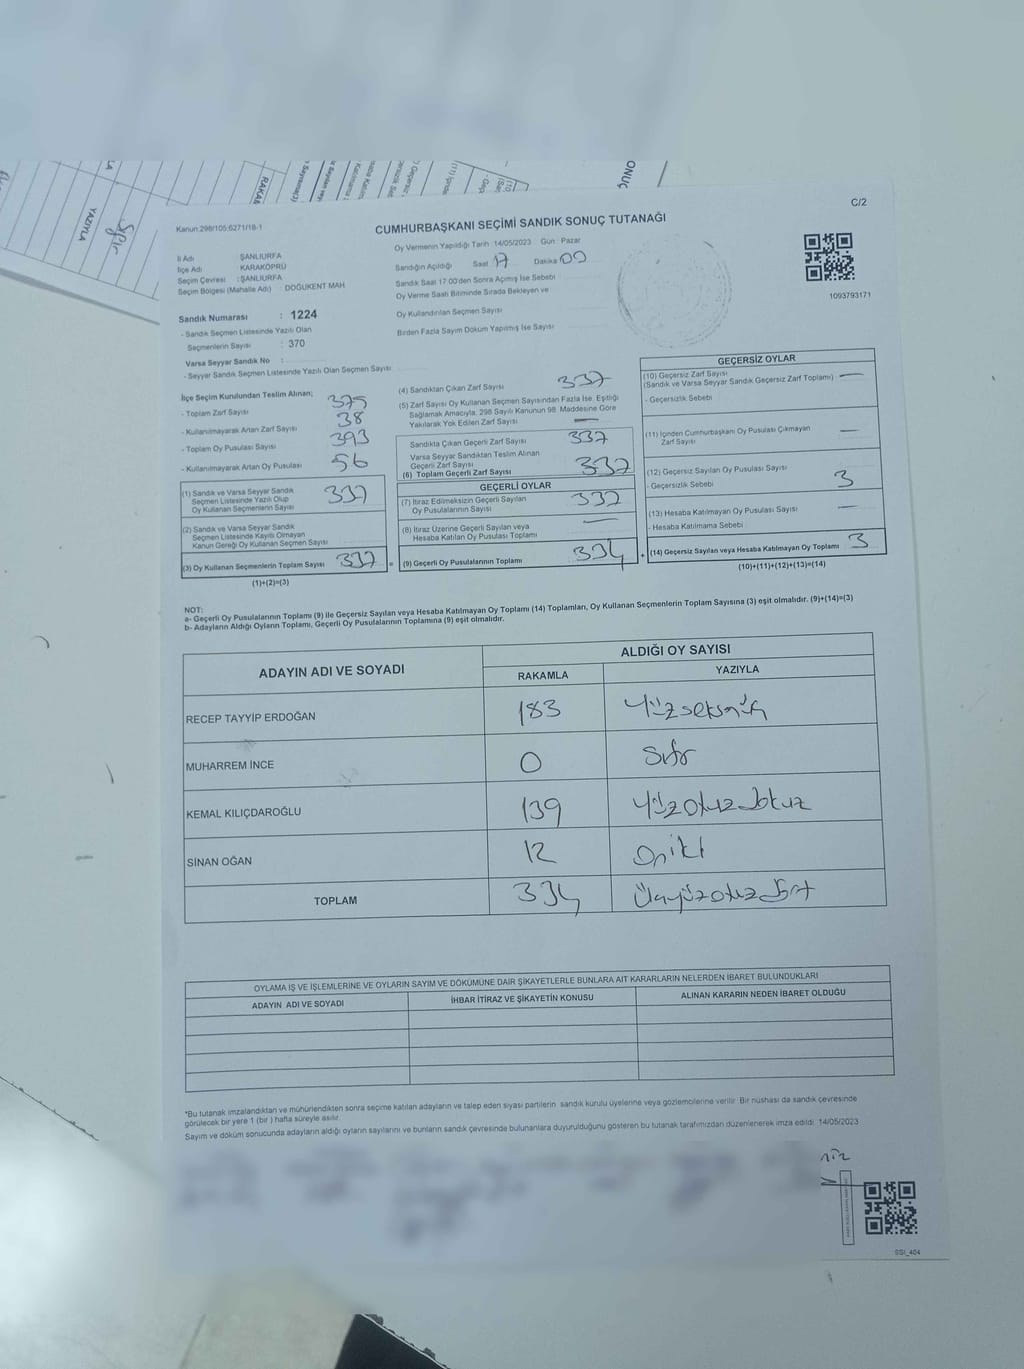 C/2
Kanun:298/105;6271/18-1
CUMHURBAŞKANI SEÇİMİ SANDIK SONUÇ TUTANAĞI
İl Adı : ŞANLIURFA
İlçe Adı : KARAKÖPRÜ
Seçim Çevresi : ŞANLIURFA
Seçim Bölgesi (Mahalle Adı) : DOĞUKENT MAH
Sandık Numarası : 1224
- Sandık Seçmen Listesinde Yazılı Olan
Seçmenlerin Sayısı : 370
Varsa Seyyar Sandık No :
- Seyyar Sandık Seçmen Listesinde Yazılı Olan Seçmen Sayısı
Oy Vermenin Yapıldığı Tarih 14/05/2023 Gün: Pazar
Sandığın Açıldığı Saat 17 Dakika 00
Sandık Saat 17:00'den Sonra Açımış İse Sebebi
Oy Verme Saati Bitiminde Sırada Bekleyen ve
Oy Kullandırılan Seçmen Sayısı
Birden Fazla Sayım Döküm Yapılmış İse Sayısı
1093793171
İlçe Seçim Kurulundan Teslim Alınan;
- Toplam Zarf Sayısı 375
- Kullanılmayarak Artan Zarf Sayısı 38
- Toplam Oy Pusulası Sayısı 393
- Kullanılmayarak Artan Oy Pusulası 56
(1) Sandık ve Varsa Seyyar Sandık
Seçmen Listesinde Yazılı Olup
Oy Kullanan Seçmenlerin Sayısı 337
(2) Sandık ve Varsa Seyyar Sandık
Seçmen Listesinde Kayıtlı Olmayan
Kanun Gereği Oy Kullanan Seçmen Sayısı
(3) Oy Kullanan Seçmenlerin Toplam Sayısı 337
(1)+(2)=(3)
(4) Sandıktan Çıkan Zarf Sayısı 337
(5) Zarf Sayısı Oy Kullanan Seçmen Sayısından Fazla İse, Eşitliği
Sağlamak Amacıyla, 298 Sayılı Kanunun 98. Maddesine Göre
Yakılarak Yok Edilen Zarf Sayısı —
Sandıkta Çıkan Geçerli Zarf Sayısı 337
Varsa Seyyar Sandıktan Teslim Alınan
Geçerli Zarf Sayısı
(6) Toplam Geçerli Zarf Sayısı 337
GEÇERLİ OYLAR
(7) İtiraz Edilmeksizin Geçerli Sayılan
Oy Pusulalarının Sayısı 337
(8) İtiraz Üzerine Geçerli Sayılan veya
Hesaba Katılan Oy Pusulası Toplamı —
(9) Geçerli Oy Pusulalarının Toplamı 334
GEÇERSİZ OYLAR
(10) Geçersiz Zarf Sayısı —
(Sandık ve Varsa Seyyar Sandık Geçersiz Zarf Toplamı)
- Geçersizlik Sebebi
(11) İçinden Cumhurbaşkanı Oy Pusulası Çıkmayan
Zarf Sayısı —
(12) Geçersiz Sayılan Oy Pusulası Sayısı 3
- Geçersizlik Sebebi
(13) Hesaba Katılmayan Oy Pusulası Sayısı —
- Hesaba Katılmama Sebebi
(14) Geçersiz Sayılan veya Hesaba Katılmayan Oy Toplamı 3
(10)+(11)+(12)+(13)=(14)
NOT:
a- Geçerli Oy Pusulalarının Toplamı (9) ile Geçersiz Sayılan veya Hesaba Katılmayan Oy Toplamı (14) Toplamları, Oy Kullanan Seçmenlerin Toplam Sayısına (3) eşit olmalıdır. (9)+(14)=(3)
b- Adayların Aldığı Oyların Toplamı, Geçerli Oy Pusulalarının Toplamına (9) eşit olmalıdır.
ADAYIN ADI VE SOYADI ALDIĞI OY SAYISI
RAKAMLA YAZIYLA
RECEP TAYYİP ERDOĞAN 183 Yüzseksenüç
MUHARREM İNCE 0 Sıfır
KEMAL KILIÇDAROĞLU 139 Yüzotuzdokuz
SİNAN OĞAN 12 Oniki
TOPLAM 334 Üçyüzotuzdört
OYLAMA İŞ VE İŞLEMLERİNE VE OYLARIN SAYIM VE DÖKÜMÜNE DAİR ŞİKAYETLERLE BUNLARA AİT KARARLARIN NELERDEN İBARET BULUNDUKLARI
ADAYIN ADI VE SOYADI İHBAR İTİRAZ VE ŞİKAYETİN KONUSU ALINAN KARARIN NEDEN İBARET OLDUĞU
*Bu tutanak imzalandıktan ve mühürlendikten sonra seçime katılan adayların ve talep eden siyasi partilerin sandık kurulu üyelerine veya gözlemcilerine verilir. Bir nüshası da sandık çevresinde
görülecek bir yere 1 (bir) hafta süreyle asılır.
Sayım ve döküm sonucunda adayların aldığı oyların sayılarını ve bunların sandık çevresinde bulunanlara duyurulduğunu gösteren bu tutanak tarafımızdan düzenlenerek imza edildi. 14/05/2023
SSI_404
YAZIYLA
Sıfır
RAKAM
ONUÇ